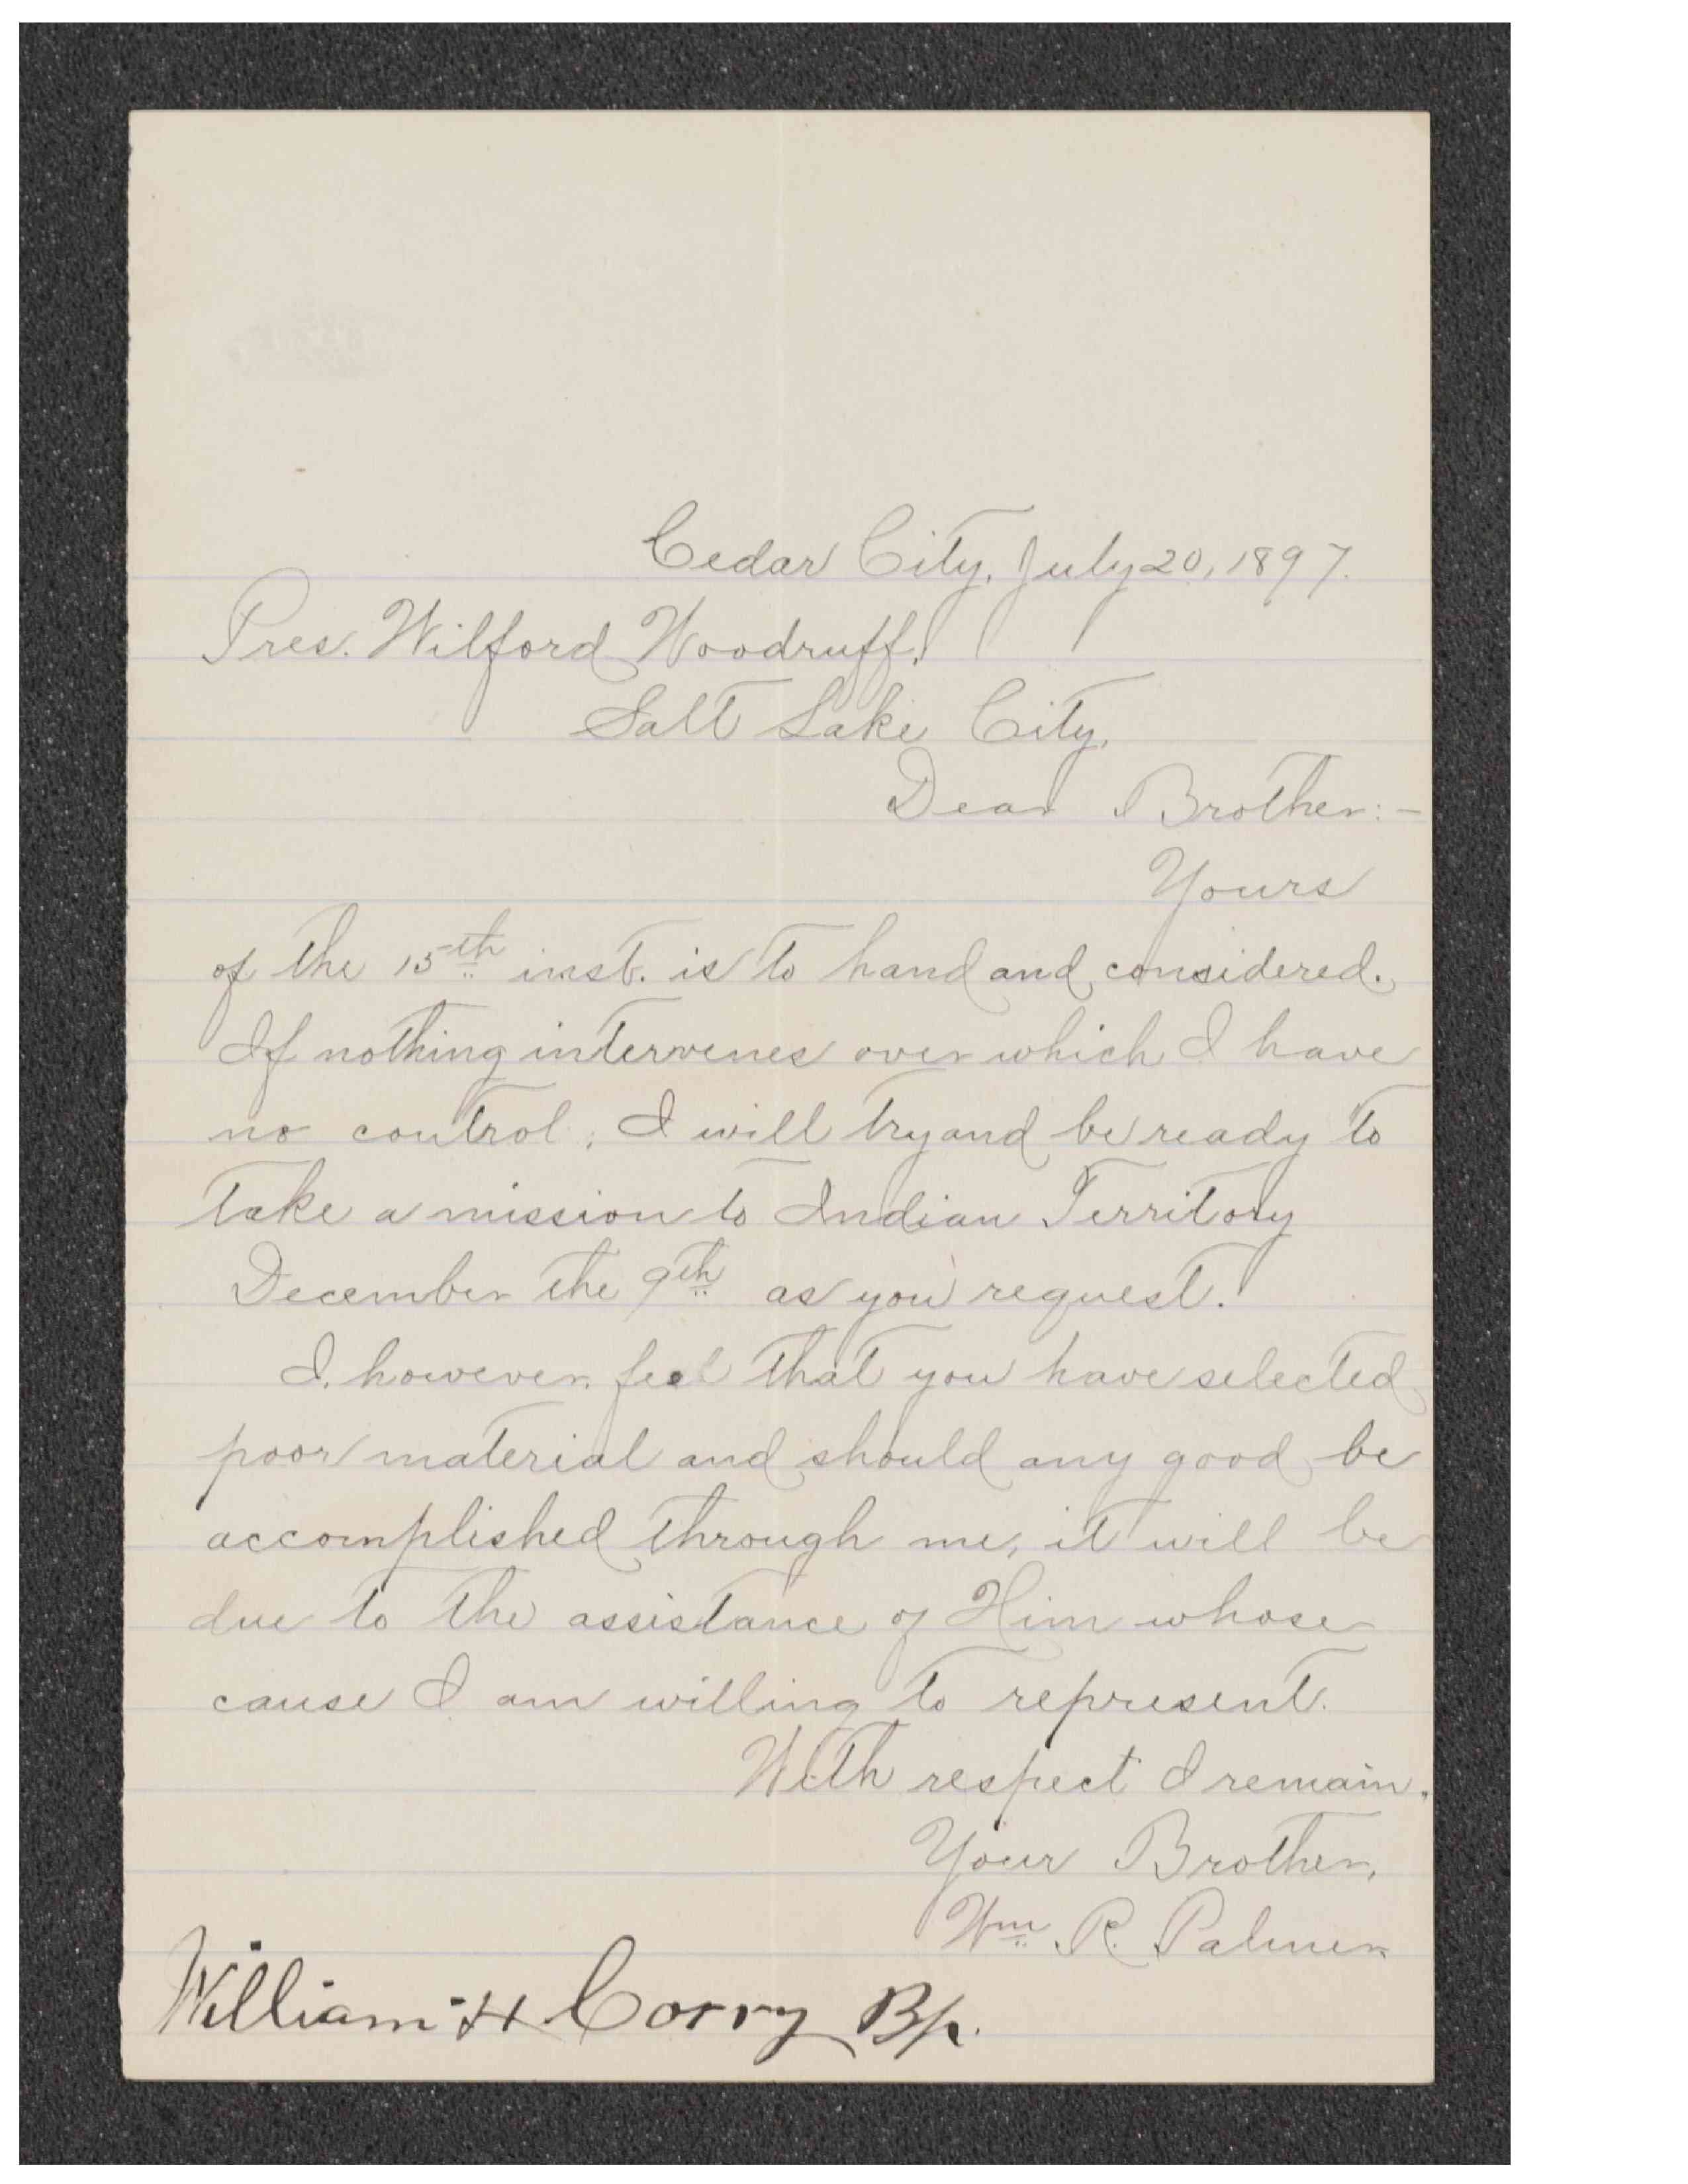 Cedar City, July 20, 1897.
Pres. Wilford Woodruff.
Salt Lake City,
Dear Brother:-
Yours
of the 15th inst. is to hand and considered.
If nothing intervenes over which I have
no control, I will try and be ready to
take a mission to Indian Territory
December the 9th as you request.
I, however, feel that you have selected
poor material and should any good be
accomplished through me, it will be
due to the assistance of Him whose
cause I am willing to represent.
With respect I remain,
Your Brother,
Wm. R. Palmer
William H Corry Bp.